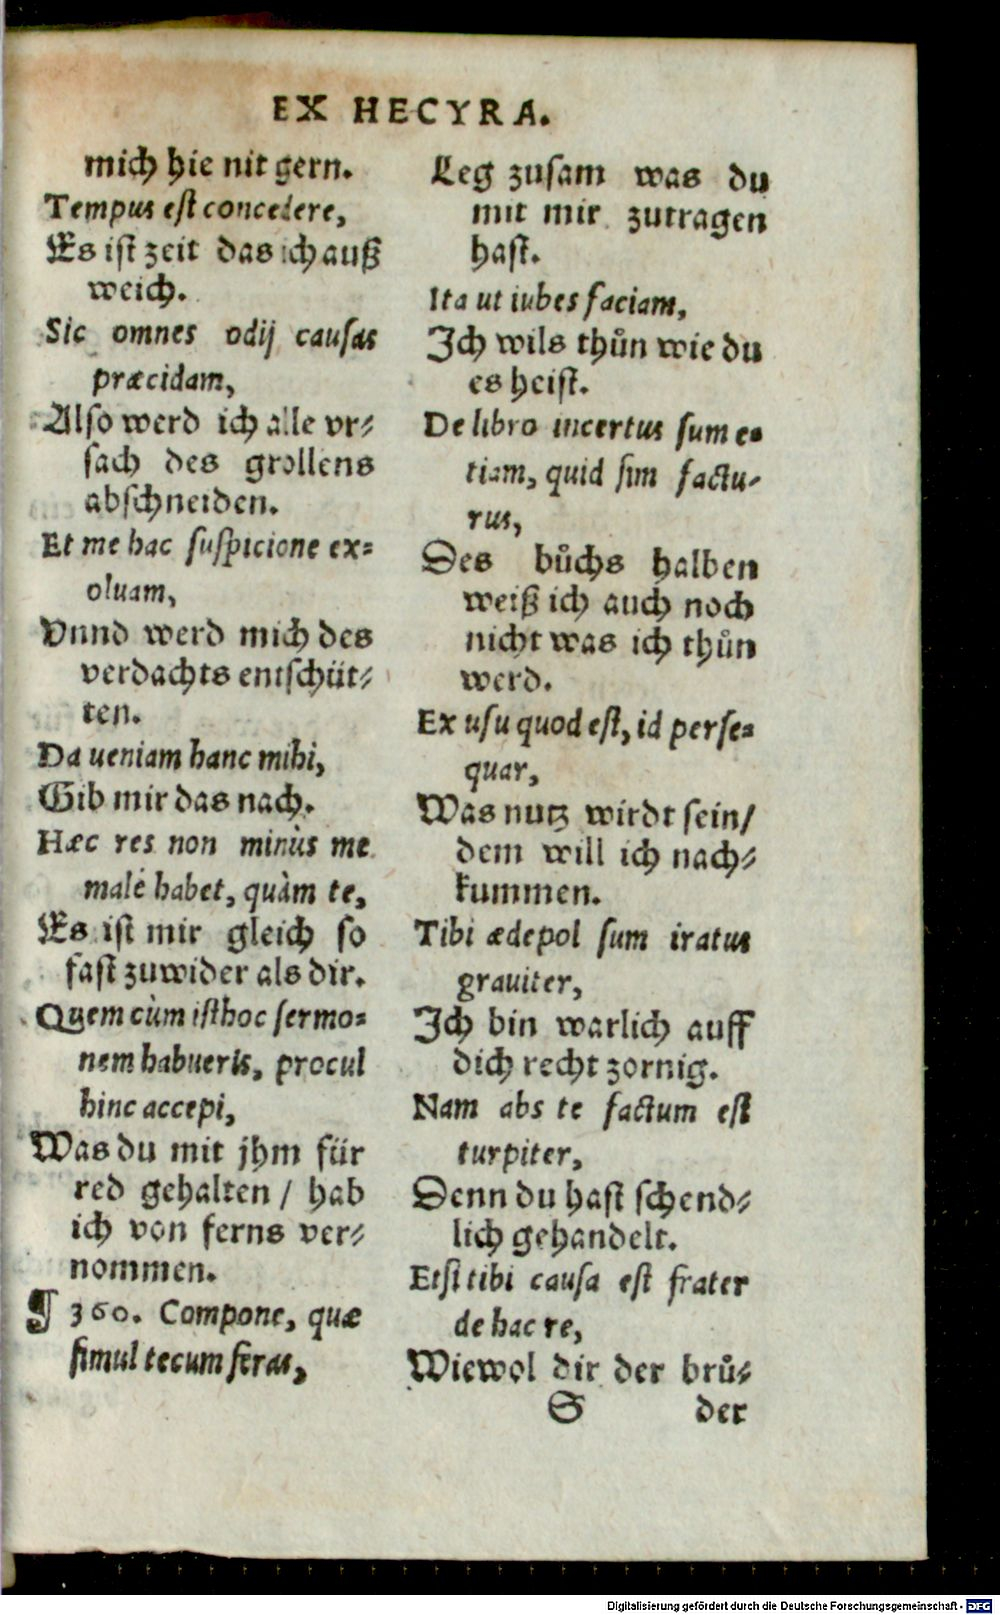 EX HECYRA.
mich hie nit gern.
Tempus est concedere,
Es ist zeit das ich auß
weich.
Sic omnes odij causas
præcidam,
Also werd ich alle vr⸗
sach des grollens
abschneiden.
Et me hac suspicione ex=
oluam,
Vnnd werd mich des
verdachts entschüt⸗
ten.
Da ueniam hanc mihi,
Gib mir das nach.
Hæc res non minùs me
malè habet, quàm te,
Es ist mir gleich so
fast zuwider als dir.
Quem cùm isthoc sermo=
nem habueris, procul
hinc accepi,
Was du mit jhm für
red gehalten / hab
ich von ferns ver⸗
nommen.
¶ 360. Compone, quæ
simul tecum feras,
Leg zusam was du
mit mir zutragen
hast.
Ita ut iubes faciam,
Ich wils thůn wie du
es heist.
De libro incertus sum e=
tiam, quid sim factu-
rus,
Des bůchs halben
weiß ich auch noch
nicht was ich thůn
werd.
Ex usu quod est, id perse=
quar,
Was nutz wirdt sein/
dem will ich nach⸗
kummen.
Tibi ædepol sum iratus
grauiter,
Ich bin warlich auff
dich recht zornig.
Nam abs te factum est
turpiter,
Denn du hast schend⸗
lich gehandelt.
Etsi tibi causa est frater
de hac re,
Wiewol dir der brů⸗
S der
Digitalisierung gefördert durch die Deutsche Forschungsgemeinschaft - DFG